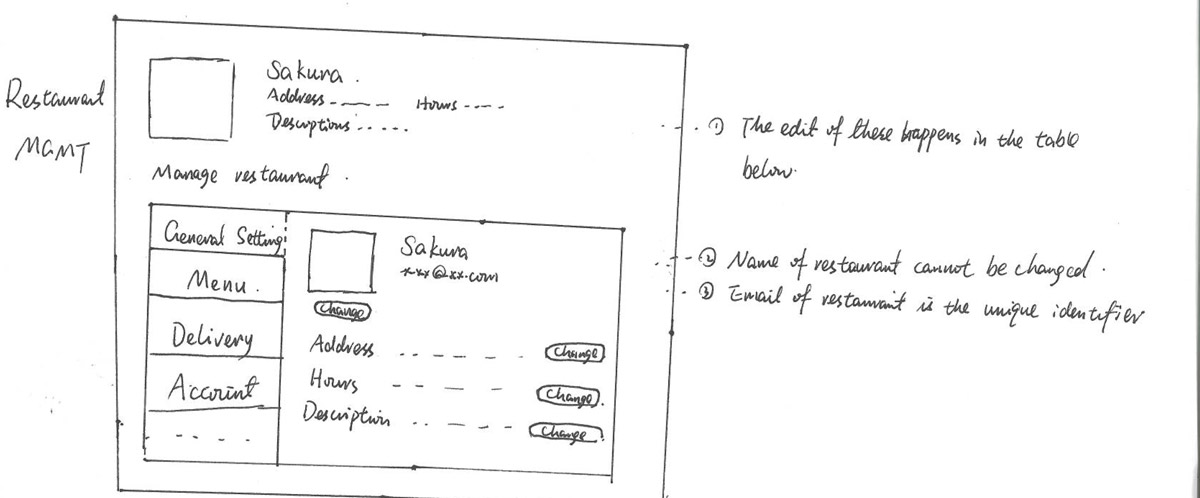 Restaurant
MGMT
Sakura.
Address ----- Hours ----
Descriptions .....
Manage restaurant.
General Setting
Menu.
Delivery
Account
.----
Sakura
*-**@**.com
Change
Address .. - - - - Change
Hours - - - - Change.
Description .. - - - Change.
--- ① The edit of these happens in the table
below.
--- ② Name of restaurant cannot be changed.
-- ③ Email of restaurant is the unique identifier